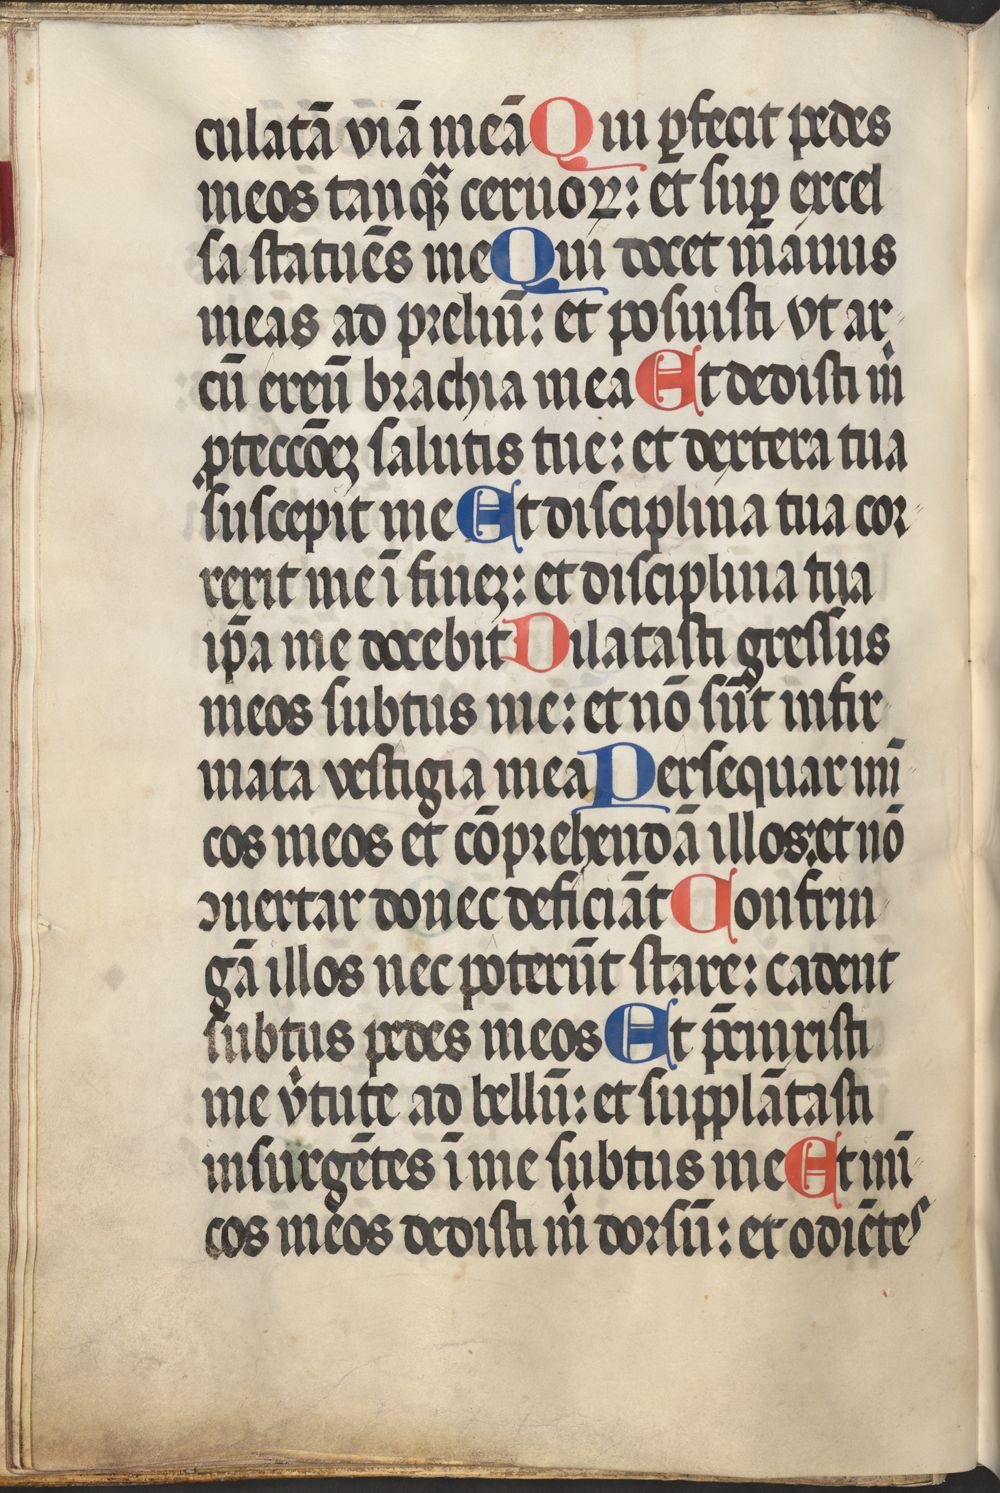 culatā viā meā Qui ꝑfecit pedes
meos tanqᷓ ceruoꝝ: et suꝑ excel
sa statuēs me Qui docet manus
meas ad preliū: et posuisti vt ar
cū ereū brachia mea Et dedisti m̄
ꝓteccōeꝫ salutis tue: et dextera tua
suscepit me Et disciplina tua cor
rexit me ī fineꝫ: et disciplina tua
ip̄a me docebit Dilatasti gressus
meos subtus me: et nō sūt infir
mata vestigia mea Persequar inī
cos meos et cōprehendā illos: et nō
ꝯuertar donec deficiāt Confrin
gā illos nec poterūt stare: cadent
subtus pedes meos Et p̄cinxisti
me v̓tute ad bellū: et supplātasti
insurgētes ī me subtus me Et inī
cos meos dedisti m̓ dorsū: et odiētes